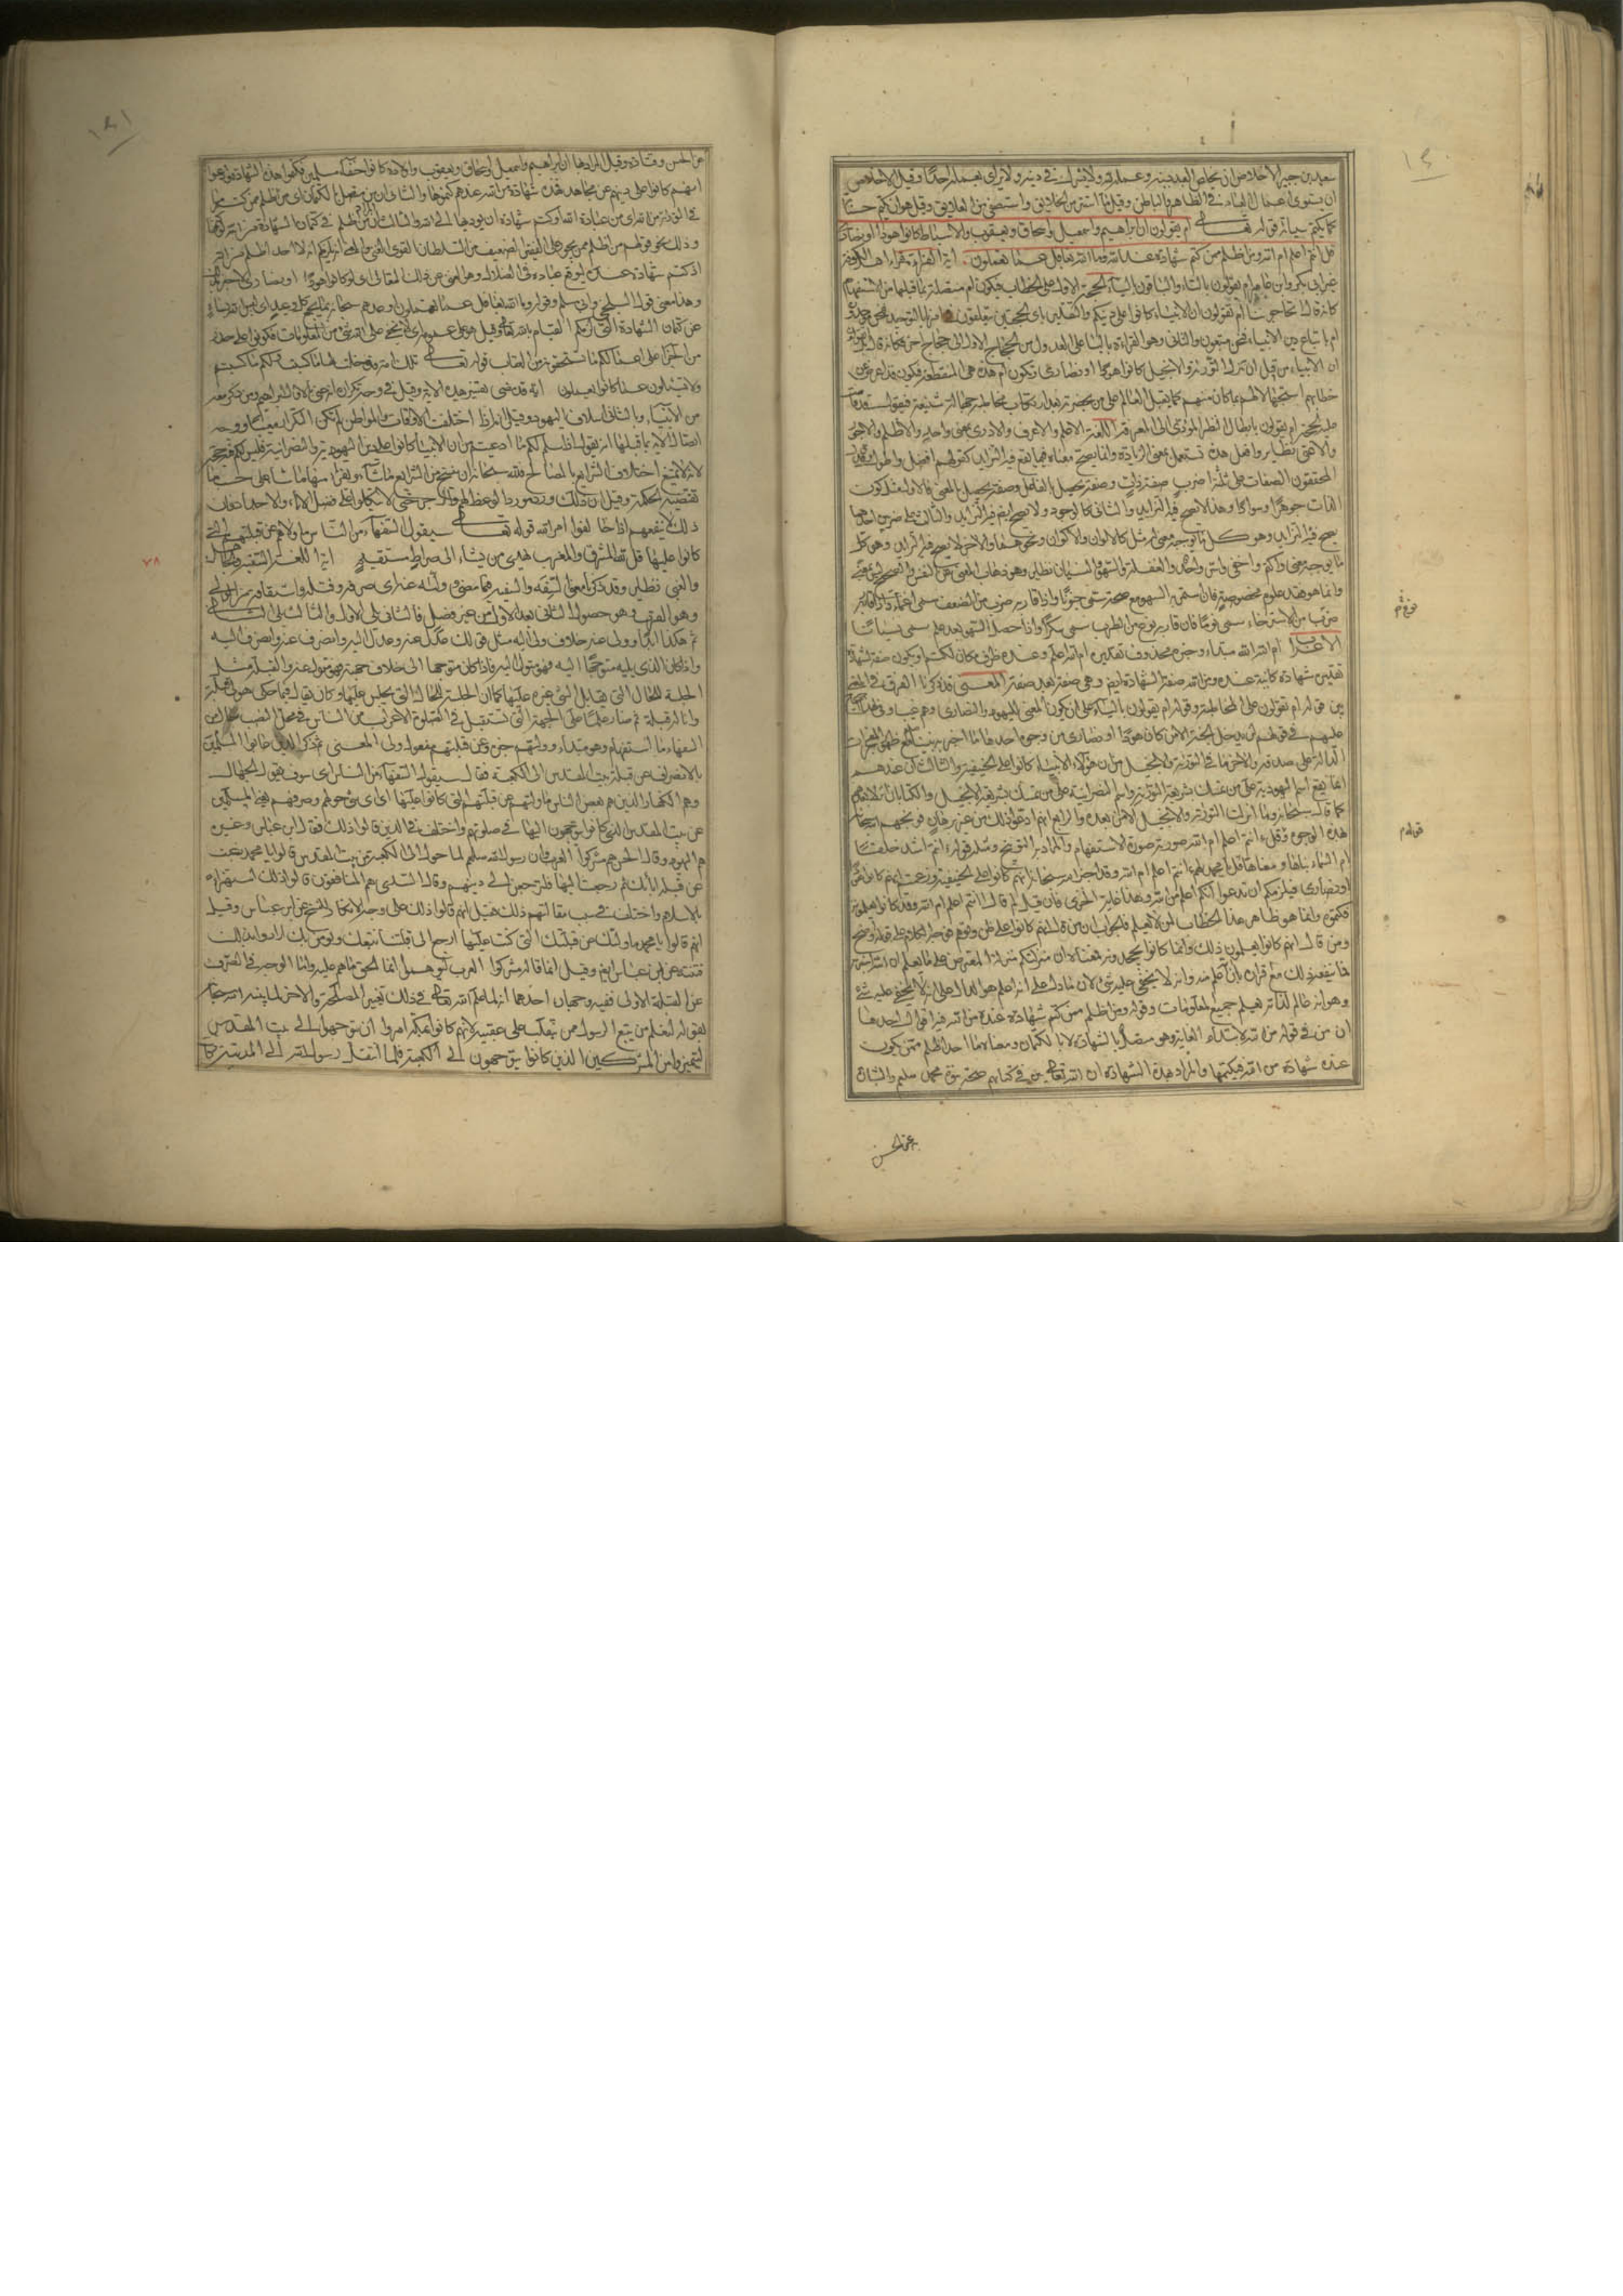 سعيد بن جبير الاخلاص ان يخلص العبد دينه وعمله لله ولا يشرك في دينه ولا يرائ بعمله احدا وقيل الاخلاص
ان تستوي اعمال العبد في الظاهر والباطن وقيل ما استتر من الخلايق واستصفي من العلايق وقيل هو ان يكتم حسناته
كما يكتم سيئاته قوله تعالى ام يقولون ان ابراهيم واسمعيل واسحاق ويعقوب والاسباط كانوا هودا او نصارى
قل ءانتم اعلم ام الله ومن اظلم ممن كتم شهادة عنده من الله وما الله بغافل عما تعملون اية القراءة قراء اهل الكوفة
غير ابي بكر وابن عامر ام تقولون بالتاء والباقون بالياء الحجة الاول على الخطاب فيكون ام متصلة بما قبلها من الاستفهام
كانه قال اتحاجوننا ام تقولون ان الانبياء كانوا على دينكم والتقدير باي الحجتين تتعلقون في امرنا بالتوحيد فنحن موحدون
ام باتباع دين الانبياء فنحن متبعون والثاني وهو القراءة بالياء على العدول من الحجاج الاول الى حجاج اخر فكانه قال
ان الانبياء من قبل ان تنزل التورية والانجيل كانوا هودا او نصارى وتكون ام هذه هي المنقطعة فيكون قد اعرض عن
خطابهم استجهالا لهم بما كان منهم كما يقبل العالم على من بحضرته بعد ارتكاب مخاطبه جهالة شنيعة فيقول قد قامت
عليه الحجة ام يقولون بابطال النظر المؤدي الى المعرفة اللغة الاعلم والاعرف والادرى بمعنى واحد والاظلم والاجور
والاعتى نظاير وافعل هذه تستعمل بمعنى الزيادة وانما يصح معناه فيما يقع فيه التزايد كقولهم افضل واطول وقد قال
المحققون الصفات على ثلثة اضرب صفة ذات وصفة تحصل بالفاعل وصفة تحصل بالمعنى فالاول مثل كون
الذات جوهرا او سوادا وهذا لا يصح فيه التزايد والثاني كالوجود ولا يصح ايضا فيه التزايد والثالث على ضربين احدهما
يصح فيه التزايد وهو كل ما يوجبه معنى له مثل كالالوان والاكوان ونحو هما والاخر لا يصح فيه التزايد وهو كل
ما يوجبه معنى واكتم واخفى واسر واحد والغفلة والسهو والنسيان نظاير وهو ذهاب المعنى عن النفس والصحيح
وانما هو فقد علوم مخصوصة فان استمر به السهو مع صحة سمي جنونا واذا قارنه ضرب من الضعف سمي اغماء واذا قارنه
ضرب من الاسترخاء سمي نوما فان قارنه نوع من الطرب سمي سكرا واذا حصل السهو بعد علم سمي نسيانا
الاعراب ام الله الله مبتداء وخبره محذوف تقديره ام الله اعلم وعنده ظرف مكان لكتم او يكون صفة لشهادة
تقديره شهادة كاينة عنده ومن الله صفة لشهادة ايضا وهي صفة بعد صفة المعنى قد ذكرنا الفرق في المعنى
بين قوله ام تقولون على المخاطبة وقوله ام يقولون بالياء على ان يكون المعنى لليهود والنصارى وهم غيب وفي هذا احتجاج
عليهم في قولهم لن يدخل الجنة الا من كان هودا او نصارى من وجوه احدها ما اخبر به نبينا مع ظهور المعجزات
الدالة على صدقه والاخر ما في التورية والانجيل من ان هؤلاء الانبياء كانوا على الحنيفية والثالث ان عندهم
انما يقع اسم اليهودية على من تمسك بشريعة التورية واسم النصرانية على من تمسك بشريعة الانجيل والكتابان انزلا بعدهم
كما قال سبحانه وما انزلت التورية والانجيل الا من بعده والرابع انهم ادعوا ذلك من غير برهان فوبخهم الله سبحانه
بهذه الوجوه وقل ءانتم اعلم ام الله صورته صورة الاستفهام والمراد به التوبيخ ومثله قوله ءانتم اشد خلقا
ام السماء بناها ومعناها قل يا محمد لهم ءانتم اعلم ام الله وقد اخبر الله سبحانه انهم كانوا على الحنيفية وزعمتم انهم كانوا هودا
او نصارى فيلزمكم ان تدعوا انكم اعلم من الله وهذا غاية الخزى فان قيل لم قال ءانتم اعلم ام الله وقد كانوا يعلمونه
فكتموه وانما هو ظاهر هذا الخطاب لمن لا يعلم فالجواب ان من قال انهم كانوا على ظن وتوهم فوجه الكلام على قوله واضح
ومن قال انهم كانوا يعلمون ذلك وانما كانوا يجحدونه فمعناه ان منزلتكم منزلة المعترض على ما يعلم ان الله اخبر به
فما ينفعه ذلك مع اقراره بان الله اعلم منه وانه لا يخفى عليه شئ لان ما دل على انه اعلم هو الدال على انه لا يخفى عليه شئ
وهو انه عالم لذاته يعلم جميع المعلومات وقوله ومن اظلم ممن كتم شهادة عنده من الله فيه اقوال احدها
ان من في قوله من الله لابتداء الغاية وهو متصل بالشهادة لا بالكتمان ومعناه ما احد اظلم ممن يكون
عنده شهادة من الله فيكتمها والمراد بهذه الشهادة ان الله تعالى بين في كتابهم صحة نبوة محمد صلعم والبشارة
عن الحسن
عن الحسن وقتادة وقيل المراد بها ان ابراهيم واسمعيل واسحاق ويعقوب واولاده كانوا حنفاء مسلمين فكتموا هذه الشهادة وادعوا
انهم كانوا على دينهم عن مجاهد فهذه شهادة من الله عندهم كتموها والثاني ان من متصل بالكتمان اي من اظلم ممن كتم ما
في التورية من الله اي من عباد الله او كتم شهادة ان يؤديها الى الله والثالث ان المراد من اظلم في كتمان الشهادة من الله لو كتمها
وذلك نحو قولهم من اظلم ممن يجور على الفقير الضعيف من السلطان القوي الغني والمعنى انه يلزمكم انه لا احد اظلم من الله
اذ كتم شهادة عنده ليوقع عباده في الضلال وهو الغني عن ذلك المتعالي اي لو كانوا هودا او نصارى لاخبر بذلك
وهذا معنى قول البلخي وابي مسلم وقوله وما الله بغافل عما تعملون اوعدهم سبحانه بما يجمع كل وعيد اي ليس الله بساه
عن كتمان الشهادة التي لزمكم القيام بها لله وقيل هو على عمومه اي لا يخفى على الله شئ من المعلومات فكونوا على حذر
من الجزاء على اعمالكم بما تستحقونه من العقاب قوله تعالى تلك امة قد خلت لها ما كسبت ولكم ما كسبتم
ولا تسئلون عما كانوا يعملون اية قد مضى تفسير هذه الاية وقيل في وجه تكراره انه عنى بالاول ابراهيم ومن ذكر معه
من الانبياء وبالثاني اسلاف اليهود وقيل انه اذا اختلفت الاوقات والمواطن لم يكن التكرار معيبا ووجه
اتصال الاية بما قبلها انه يقول اذا سلم لكم ما ادعيتم من ان الانبياء كانوا على دين اليهودية والنصرانية فليس لكم فيه حجة
لانه لا يمتنع اختلاف الشرايع بالمصالح فلله سبحانه ان ينسخ من الشرايع ما شاء ويقر منها ما شاء على حسب ما
تقتضيه الحكمة وقيل ان ذلك ورد مورد الوعظ لهم والزجر حتى لا يتكلوا على فضل الاباء والاجداد فان
ذلك لا ينفعهم اذا خالفوا امر الله قوله تعالى سيقول السفهاء من الناس ما ولاهم عن قبلتهم التي
كانوا عليها قل لله المشرق والمغرب يهدي من يشاء الى صراط مستقيم اية اللغة السفيه والجاهل
والغبي نظاير وقد ذكرنا معنى السفه والسفيه فيما مضى وولّاه عنه اي صرفه وفتله واشتقاقه من الولي
وهو القرب وهو حصول الثاني بعد الاول من غير فصل فالثاني يلي الاول والثالث يلي الثاني
ثم هكذا ابدا وولى عنه خلاف ولى اليه مثل قولك عدل عنه وعدل اليه وانصرف عنه وانصرف اليه
واذا كان الذي يليه متوجها اليه فهو متول اليه واذا كان متوجها الى خلاف جهته فهو متول عنه والقبلة مثل
الجلسة للحال التي يقابل الشئ غيره عليها كما ان الجلسة للحال التي يجلس عليها وكان يقال فيما حكى هو لي قبلة
وانا له قبلة ثم صار علما على الجهة التي تستقبل في الصلوة الاعراب من الناس في محل النصب على الحال من
السفهاء ما استفهام وهو مبتداء وولّيهم خبره وعن قبلتهم مفعول ولى المعنى ثم ذكر الله الذين عابوا المسلمين
بالانصراف عن قبلة بيت المقدس الى الكعبة فقال سيقول السفهاء من الناس اي سوف يقول الجهال
وهم الكفار الذين هم بعض الناس ما ولّيهم عن قبلتهم التي كانوا عليها اي اي شئ حولهم وصرفهم يعني المسلمين
عن بيت المقدس الذي كانوا يتوجهون اليها في صلوتهم واختلف في الذين قالوا ذلك فقال ابن عباس وغيره
هم اليهود وقال الحسن هم مشركوا العرب فان رسول الله صلعم لما حوّل الى الكعبة من بيت المقدس قالوا يا محمد رغبت
عن قبلة ابائك ثم رجعت اليها فلترجعن الى دينهم وقال السدي هم المنافقون قالوا ذلك استهزاء
بالاسلام واختلف في سبب مقالتهم ذلك فقيل انهم قالوا ذلك على وجه الانكار للنسخ عن ابن عباس وقيل
انهم قالوا يا محمد ما ولّيك عن قبلتك التي كنت عليها ارجع الى قبلتنا نتبعك ونؤمن بك ارادوا بذلك
فتنته عن ابن عباس ايضا وقيل انما قاله مشركوا العرب ليوهموا ان الحق ما هم عليه واما الوجه في الصرف
عن القبلة الاولى ففيه وجهان احدهما انه لما علم الله تعالى في ذلك تغير المصلحة والاخر لما بينه الله سبحانه
بقوله لنعلم من يتبع الرسول ممن ينقلب على عقبيه لانهم كانوا بمكة امروا ان يتوجهوا الى بيت المقدس
ليتميزوا من المشركين الذين كانوا يتوجهون الى الكعبة فلما انتقل رسول الله الى المدينة كانت